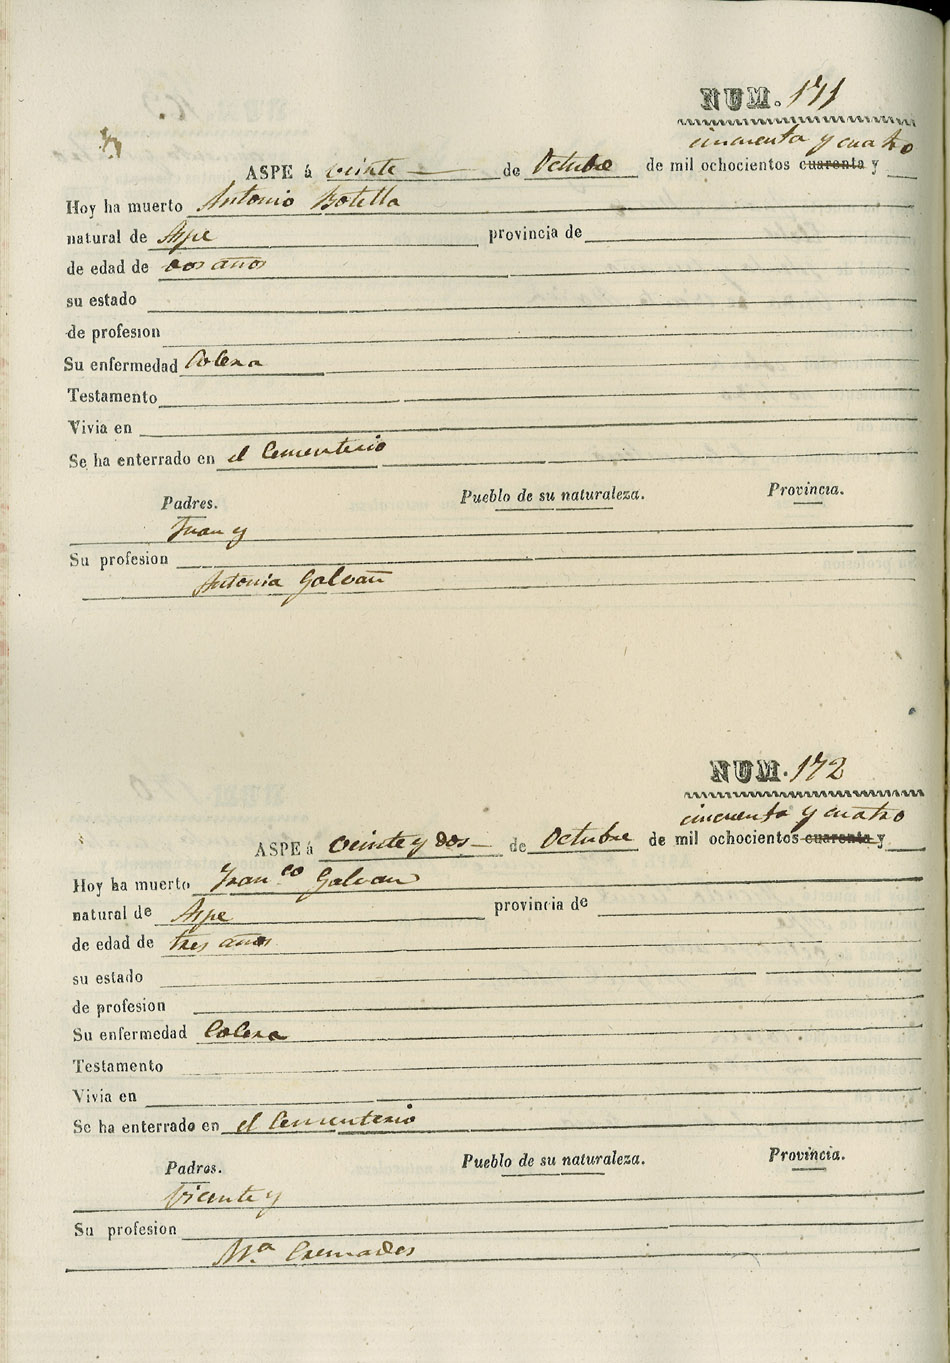 NUM. 171
cincuenta y cuatro
ASPE á veinte de Octubre de mil ochocientos cuarenta y
Hoy ha muerto Antonio Botella
natural de Aspe provincia de
de edad de dos años
su estado
de profesion
Su enfermedad Colera
Testamento
Vivia en
Se ha enterrado en el Cementerio
Padres. Pueblo de su naturaleza. Provincia.
Juan y
Su profesion
Antonia Galvañ
NUM. 172
cincuenta y cuatro
ASPE á veinte y dos de Octubre de mil ochocientos cuarenta y
Hoy ha muerto Franco Galvan
natural de Aspe provincia de
de edad de tres años
su estado
de profesion
Su enfermedad Colera
Testamento
Vivia en
Se ha enterrado en el Cementerio
Padres. Pueblo de su naturaleza. Provincia.
Vicente y
Su profesion
Mª Cremades